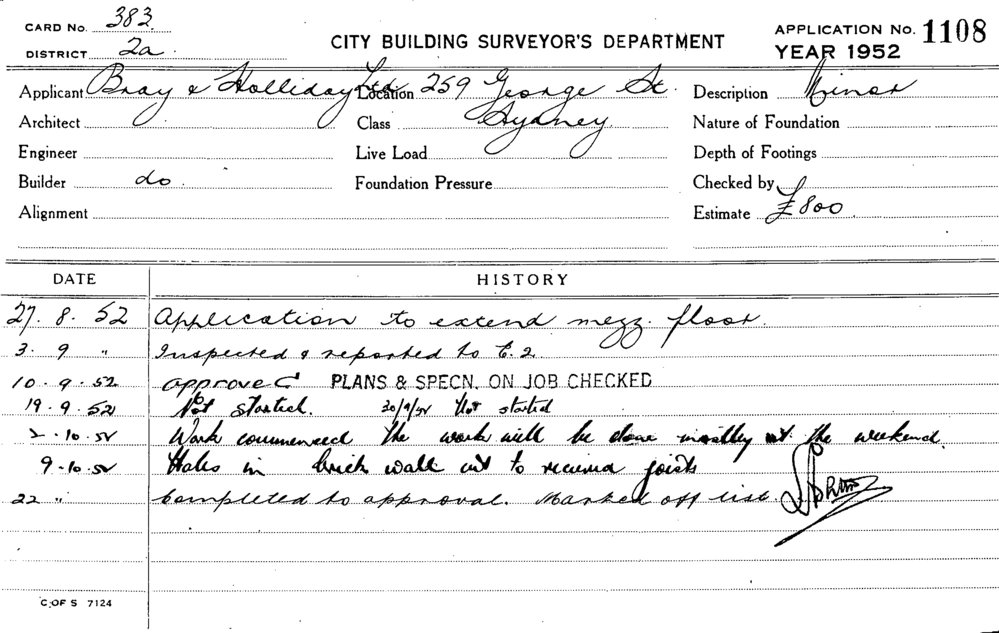 CARD No. 383
DISTRICT 2a.
CITY BUILDING SURVEYOR'S DEPARTMENT
APPLICATION No. 1108
YEAR 1952
Applicant Bray & Holliday Ltd Location 259 George St. Description Minor
Architect Class Sydney Nature of Foundation
Engineer Live Load Depth of Footings
Builder do. Foundation Pressure Checked by
Alignment Estimate £800
DATE HISTORY
27. 8. 52 Application to extend mezz. floor.
3. 9 " Inspected & reported to C.2
10. 9. 52 approved PLANS & SPECN. ON JOB CHECKED
19. 9. 52 Not started. 30/9/52 Not started
2. 10. 52 Work commenced the work will be done mostly at the weekend.
9. 10. 52 Holes in brick wall cut to receive joists
22 " Completed to approval. Marked off list.
C.OF S 7124